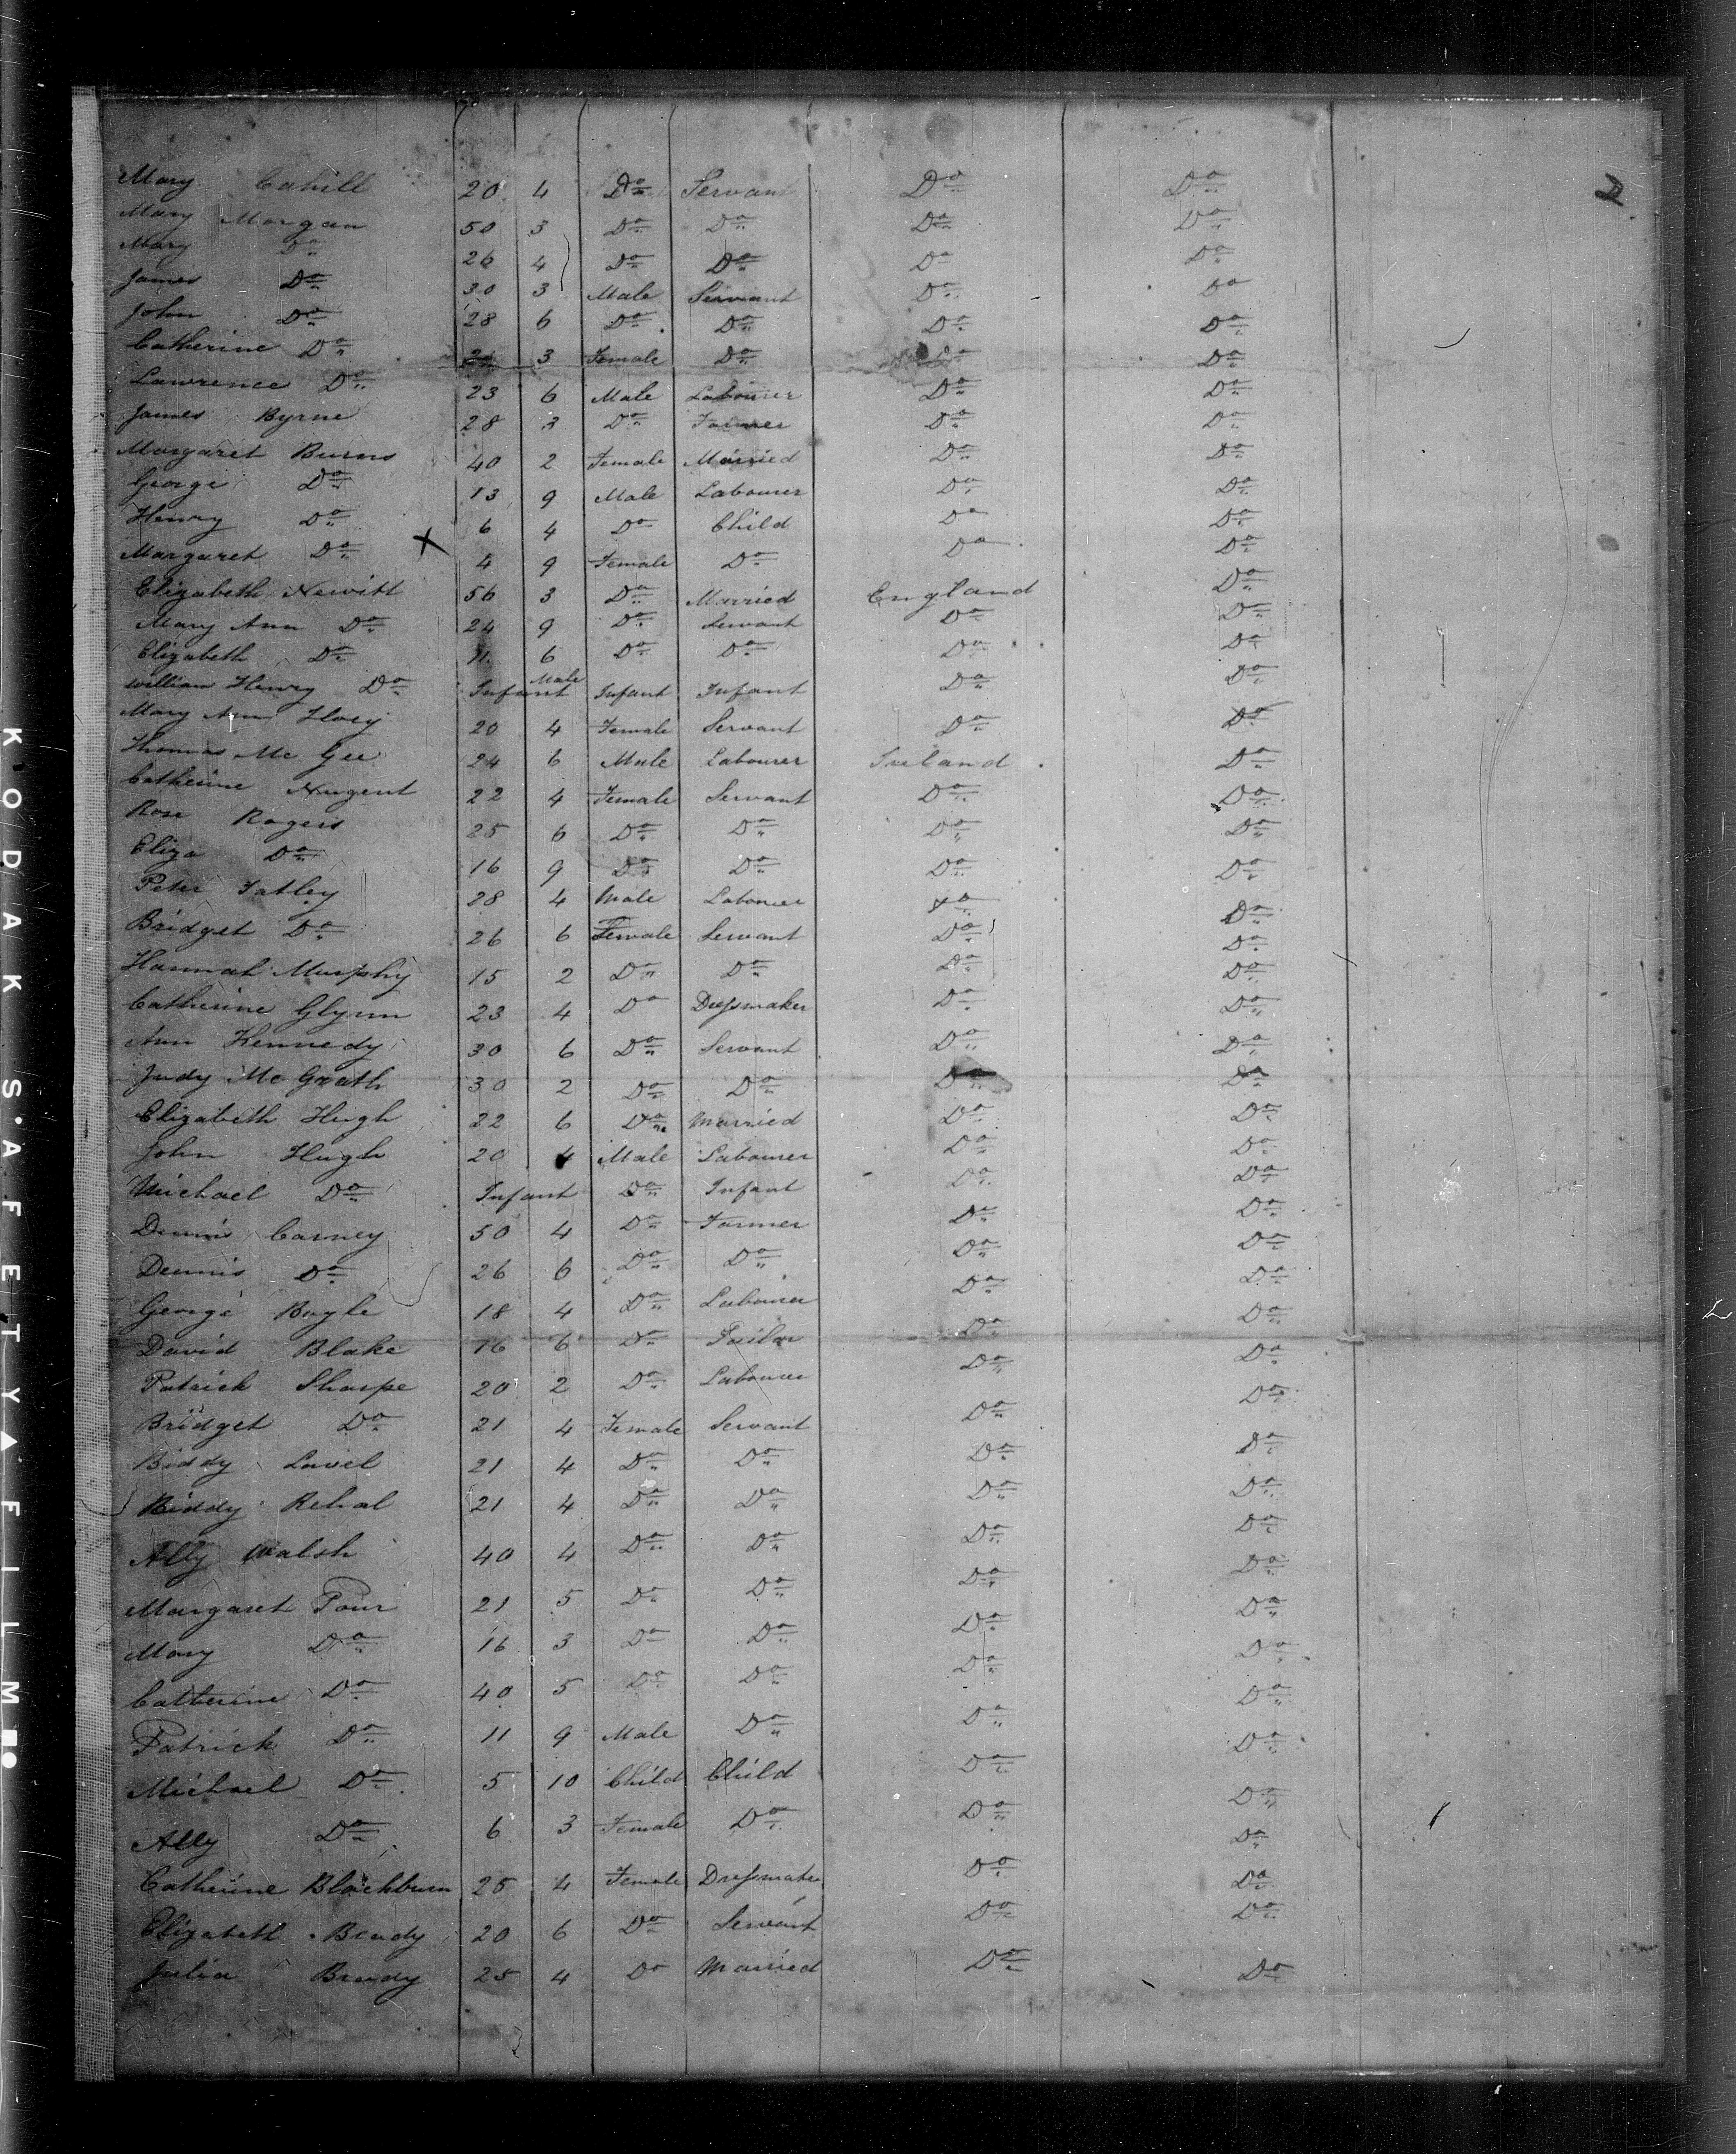 2
Mary Cahill 20 4 Do Servant Do Do
Mary Morgan 50 3 Do Do Do Do
Mary Do 26 4 Do Do Do Do
James Do 30 3 Male Servant Do Do
John Do 28 6 Do Do Do Do
Catherine Do 3 Female Do Do Do
Lawrence Do 23 6 Male Labourer Do Do
James Byrne 28 3 Do Farmer Do Do
Margaret Burns 40 2 Female Married Do Do
George Do 13 9 Male Labourer Do Do
Henry Do 6 4 Do Child Do Do
Margaret Do X 4 9 Female Do Do Do
Elizabeth Newitt 56 3 Do Married England Do
Mary Ann Do 24 9 Do Servant Do Do
Elizabeth Do 11 6 Do Do Do Do
William Henry Do Infant Male Infant Infant Do Do
Mary Ann Hoey 20 4 Female Servant Do Do
Thomas Mc Gee 24 6 Male Labourer Ireland Do
Catherine Nugent 22 4 Female Servant Do Do
Rose Rogers 25 6 Do Do Do Do
Eliza Do 16 9 Do Do Do Do
Peter Tatley 28 4 Male Labourer Do Do
Bridget Do 26 6 Female Servant Do Do
Hannah Murphy 15 2 Do Do Do Do
Catherine Glynn 23 4 Do Dressmaker Do Do
Ann Kennedy 30 6 Do Servant Do Do
Judy Mc Grath 30 2 Do Do Do Do
Elizabeth Hugh 22 6 Do Married Do Do
John Hugh 20 4 Male Labourer Do Do
Michael Do Infant Do Infant Do Do
Dennis Carney 50 4 Do Farmer Do Do
Dennis Do 26 6 Do Do Do Do
George Boyle 18 4 Do Labourer Do Do
David Blake 16 6 Do Do Do
Patrick Sharpe 20 2 Do Labourer Do Do
Bridget Do 21 4 Female Servant Do Do
Biddy Lavel 21 4 Do Do Do Do
Biddy Rehal 21 4 Do Do Do Do
Ally Walsh 40 4 Do Do Do Do
Margaret Pour 21 5 Do Do Do Do
Mary Do 16 3 Do Do Do Do
Catherine Do 40 5 Do Do Do Do
Patrick Do 11 9 Male Do Do Do
Michael Do 5 10 Child Child Do Do
Ally Do 6 3 Female Do Do Do
Catherine Blackburn 25 4 Female Dressmaker Do Do
Elizabeth Brady 20 6 Do Servant Do Do
Julia Brady 25 4 Do Married Do Do
KODAK·SAFETY▲FILM